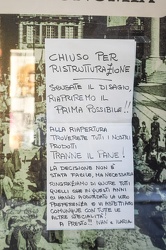 CHIUSO PER
RISTRUTTURAZIONE
SCUSATE IL DISAGIO,
RIAPRIREMO IL
PRIMA POSSIBILE!!
ALLA RIAPERTURA
TROVERETE TUTTI I NOSTRI
PRODOTTI
TRANNE IL PANE!
LA DECISIONE NON È
STATA FACILE, MA NECESSARIA
RINGRAZIAMO DI CUORE TUTTI
QUELLI CHE IN QUESTI ANNI
CI HANNO ACCORDATO LA LORO
PREFERENZA E VI ASPETTIAMO
COMUNQUE CON TUTTE LE
ALTRE SPECIALITÀ
A PRESTO!! IVAN E ILARIA